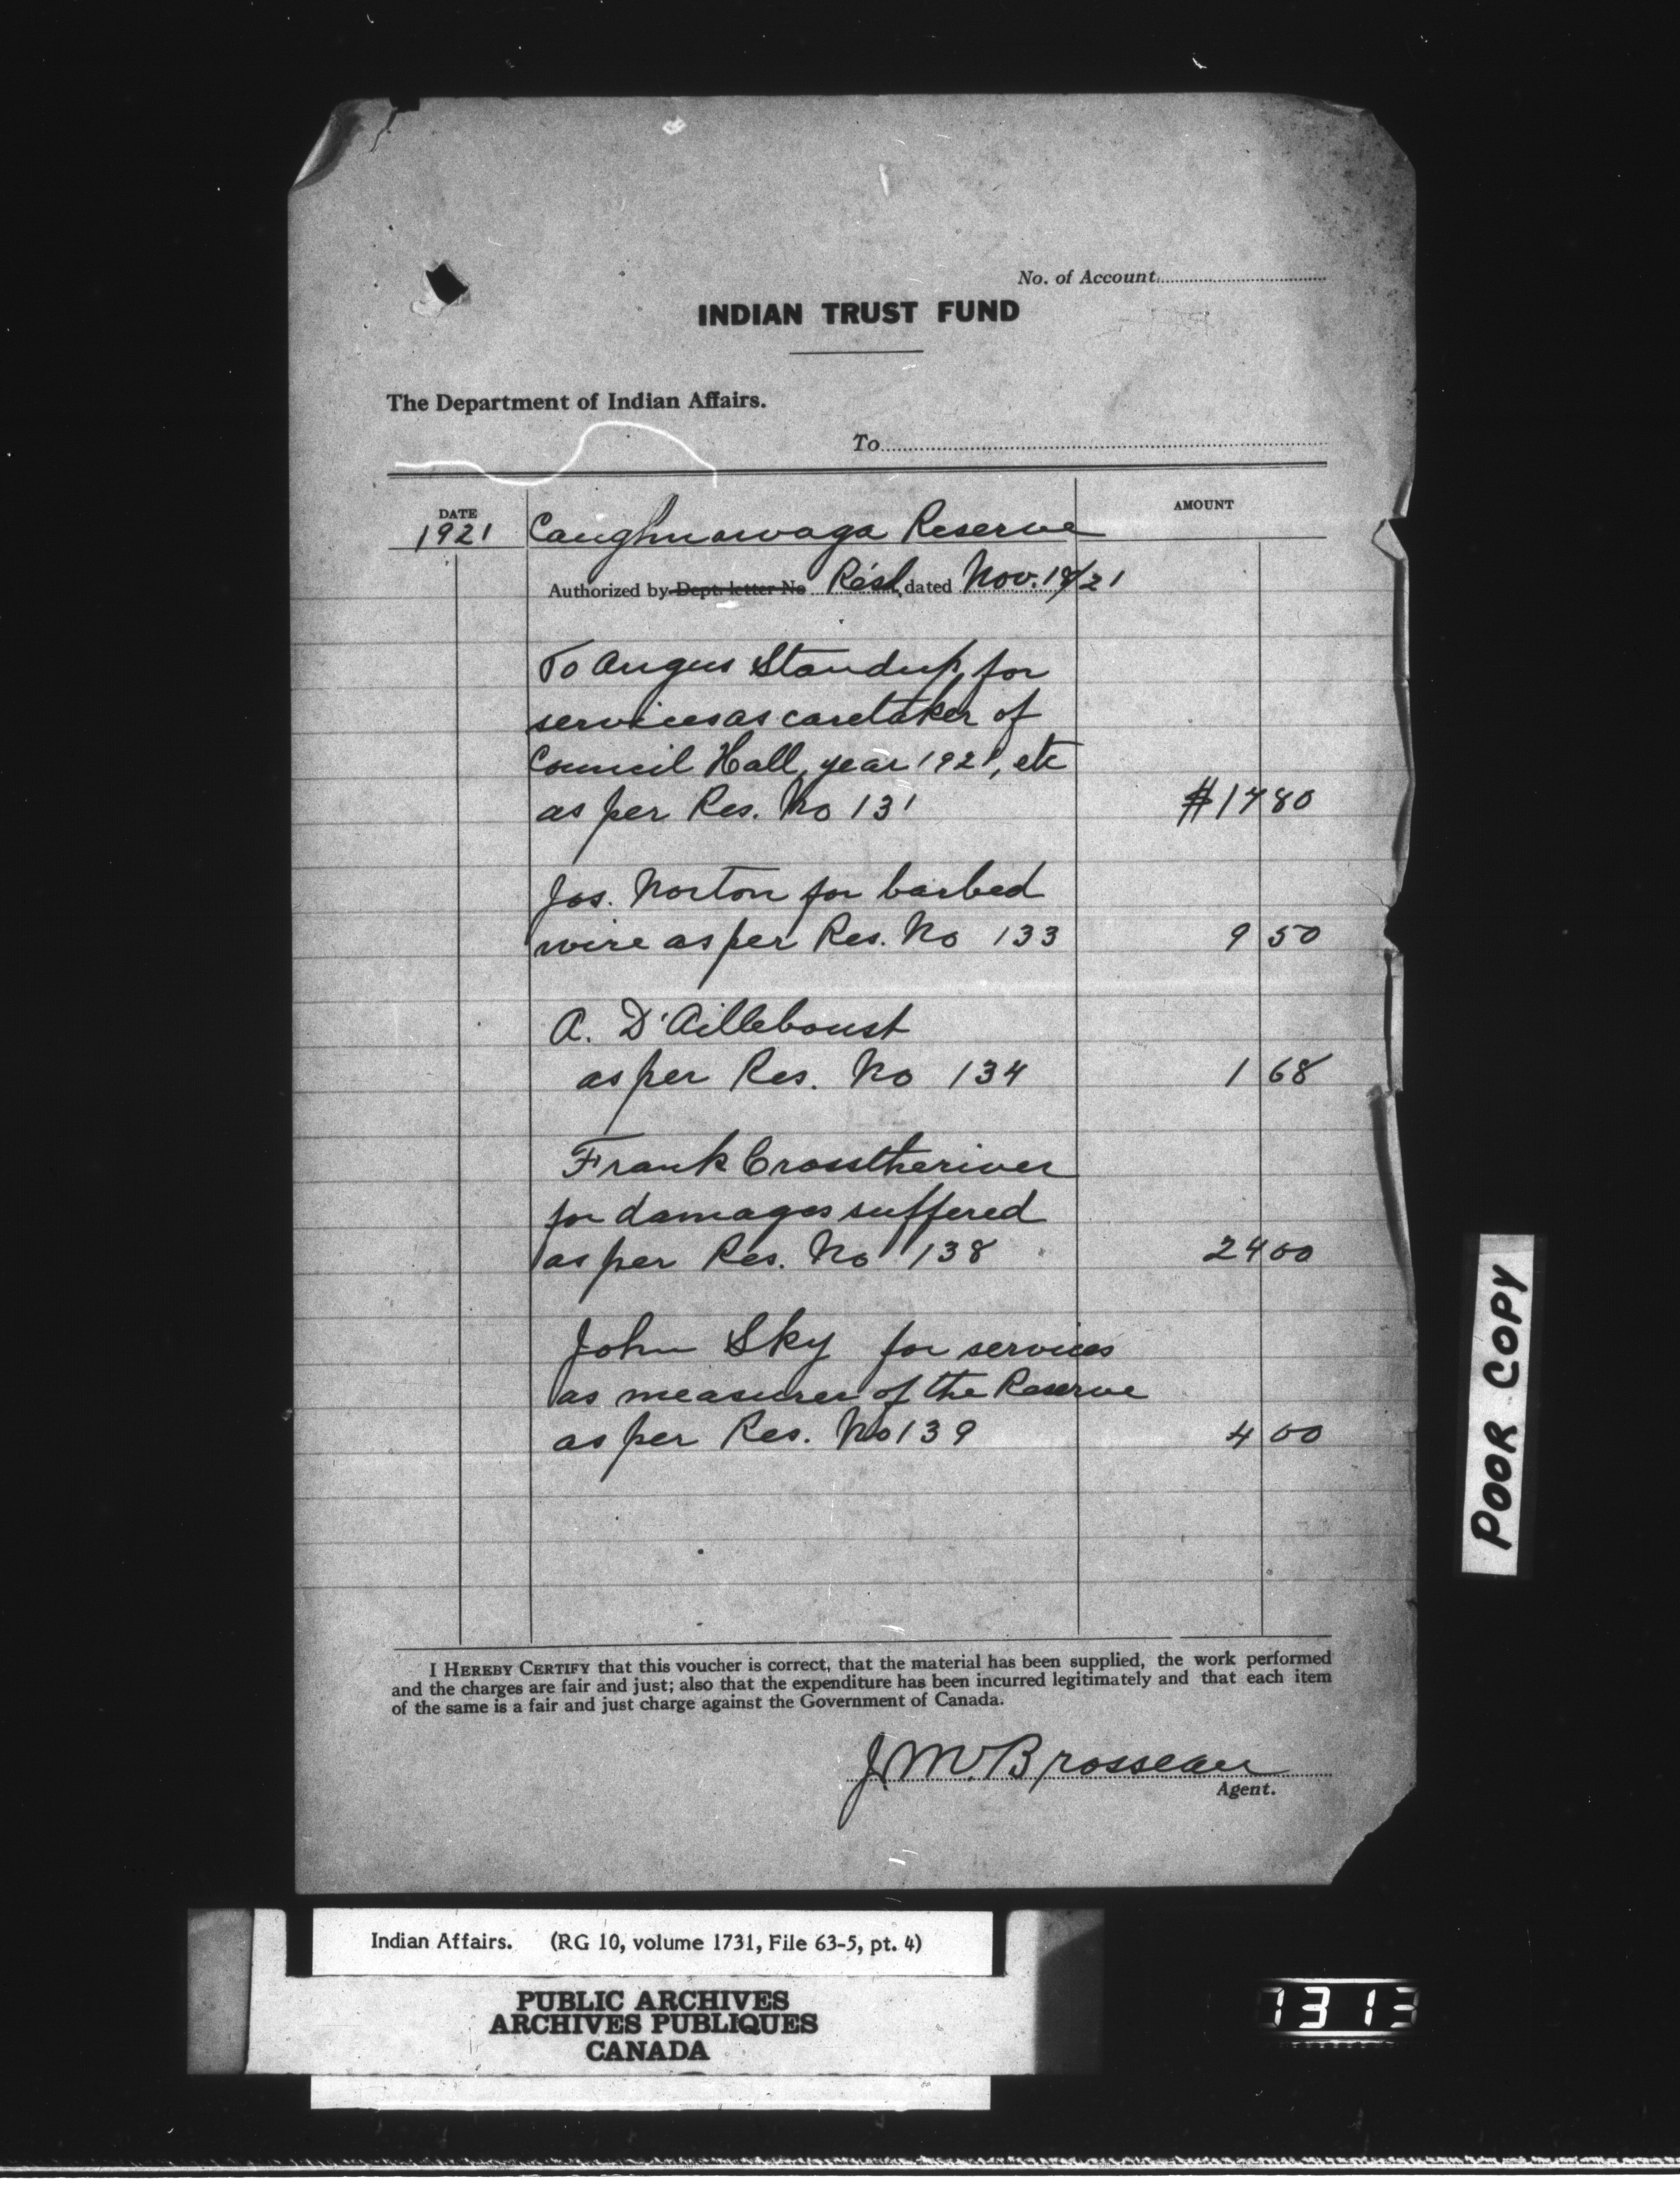 No. of Account
INDIAN TRUST FUND
The Department of Indian Affairs.
To
DATE
AMOUNT
1921 Caughnawaga Reserve
Authorized by Dept. letter No Resl, dated Nov. 18/21
To Angus Standup, for
services as caretaker of
Council Hall, year 1921, etc
as per Res. No 131 $17 80
Jos. Norton for barbed
wire as per Res. No 133 9 50
A. D'Ailleboust
as per Res. No 134 1 68
Frank Crosstheriver
for damages suffered
as per Res. No 138 24 00
John Sky for services
as measurer of the Reserve
as per Res. No 139 4 00
I HEREBY CERTIFY that this voucher is correct, that the material has been supplied, the work performed
and the charges are fair and just; also that the expenditure has been incurred legitimately and that each item
of the same is a fair and just charge against the Government of Canada.
J. M. Brosseau
Agent.
POOR COPY
Indian Affairs. (RG 10, volume 1731, File 63-5, pt. 4)
PUBLIC ARCHIVES
ARCHIVES PUBLIQUES
CANADA
1313